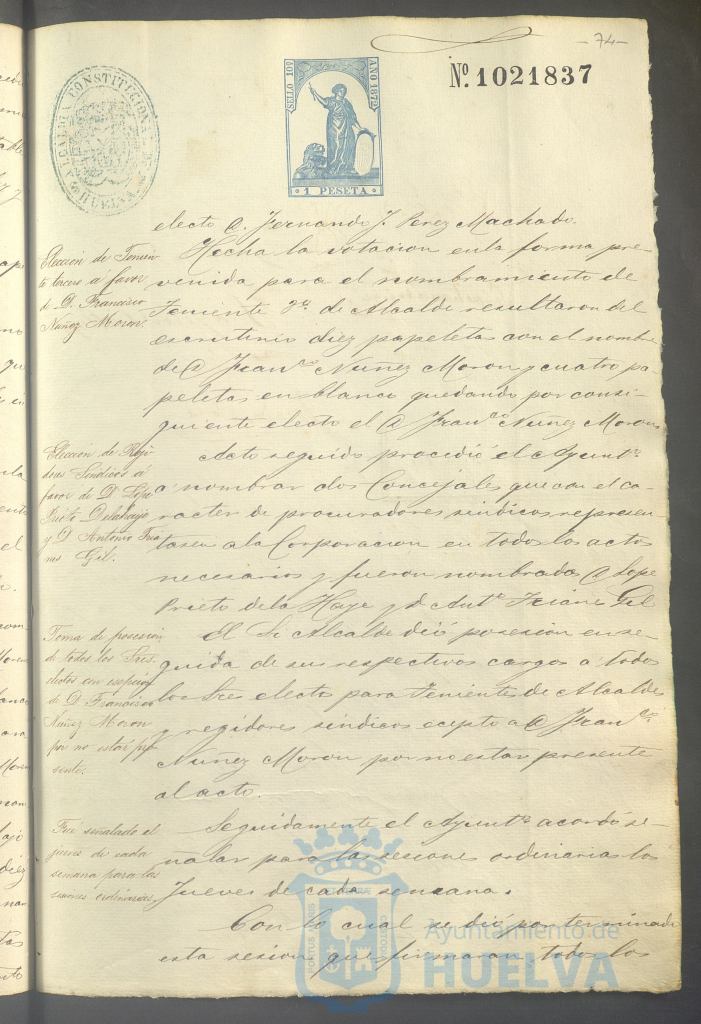 -74-
ALCALDIA CONSTITUCIONAL DE HUELVA
SELLO 10º
AÑO 1872
1 PESETA
Nº. 1021837
electo D. Fernando J. Perez Machado.
Eleccion de Tenien
te tercero á favor
de D. Francisco
Nuñez Moron.
Hecha la votacion en la forma pre-
venida para el nombramiento de
Teniente 3º de Alcalde resultaron del
escrutinio diez papeletas con el nombre
de D Fran.co Nuñez Moron y cuatro pa
peletas en blanco quedando por consi-
guiente electo el D Fran.co Nuñez Moron
Eleccion de Regi
dores Sindicos á
favor de D Lope
Prieto Delahaye
y D Antonio Tria
nes Gil.
Acto seguido procedió el Ayunt.o
á nombrar dos Concejales que con el ca-
racter de procuradores sindicos represen-
tasen ala Corporacion en todos los actos
necesarios y fueron nombrados D Lope
Prieto dela Haye y d Ant.o Trianes Gil
Toma de posesion
de todos los Sres
electos con esepcion
de D Francisco
Nuñez Moron
por no estar pre
sente.
El Sr Alcalde dió posesion ense-
guida de sus respectivos cargos a todos
los Sres electos para tenientes de Alcaldes
y regidores sindicos ecepto a D Fran.co
Nuñez Moron por no estar presente
al acto.
Fue señalado el
jueves de cada
semana para las
sesiones ordinarias.
Seguidamente el Ayunt.o acordó se-
ñalar para las sesiones ordinarias los
Jueves de cada semana.
Con lo cual se dió por terminada
esta sesion que firmaran todos los
PORTUS MARIS
ET TERRAE
CUSTODIA
Ayuntamiento de
HUELVA